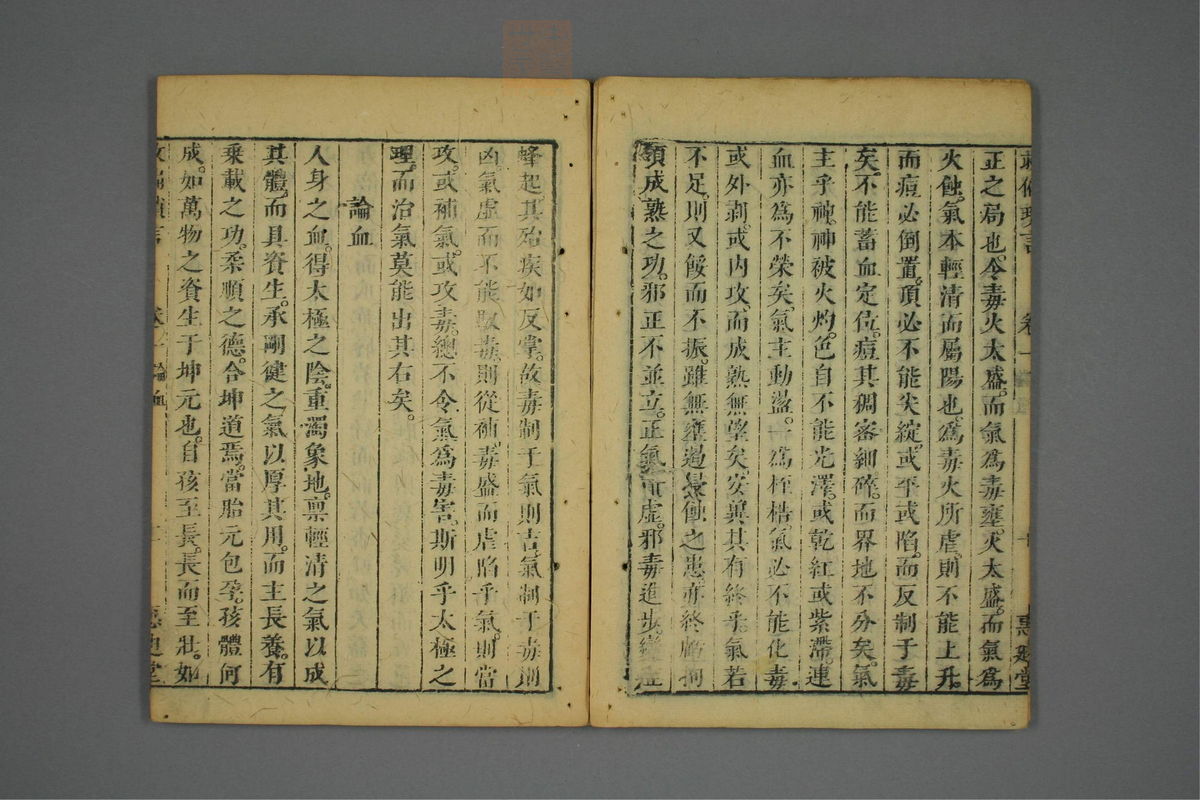 卷一
十
惠廸堂
正之局也。今毒火太盛。而氣爲毒壅。火太盛。而氣爲
火蝕。氣本輕清而屬陽也。爲毒火所虐。則不能上升。
而痘必倒置。頂必不能尖綻。或平或陷。而反制于毒
矣。不能蓄血定位。痘其稠密細碎。而界地不分矣。氣
主乎神。神被火灼。色自不能光澤。或乾紅或紫滯。連
血亦爲不榮矣。氣主動盪。一爲桎梏。氣必不能化毒
或外剥。或内攻。而成熟無望矣。安冀其有終乎。氣若
不足。則又餒而不振。雖無壅遏侵蝕之患。亦終難拘
領成熟之功。邪正不並立。正氣一虛。邪毒進步。變症
蜂起。其殆疾如反掌。故毒制于氣則吉。氣制于毒則
凶。氣虛而不能馭毒。則從補。毒盛而虐陷乎氣。則當
攻。或補氣。或攻毒。總不令氣爲毒害。斯明乎太極之
理。而治氣莫能出其右矣。
論血
人身之血。得太極之陰。重濁象地。禀輕清之氣以成
其體。而具資生。承剛健之氣以厚其用。而主長養。有
乘載之功。柔順之德。合坤道焉。當胎元包孕。孩體何
成。如萬物之資生于坤元也。自孩至長。長而至壯。如
救偏瑣言
卷一
論血
惠廸堂